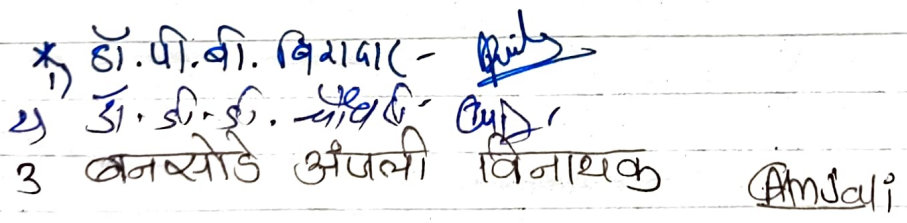 १) डॉ.पी.बी. बिरादार -
२) डॉ. डी. डी. चौधरी -
3 बनसोडे अंजली विनायक Anjali